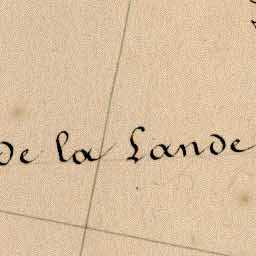 de la Lande